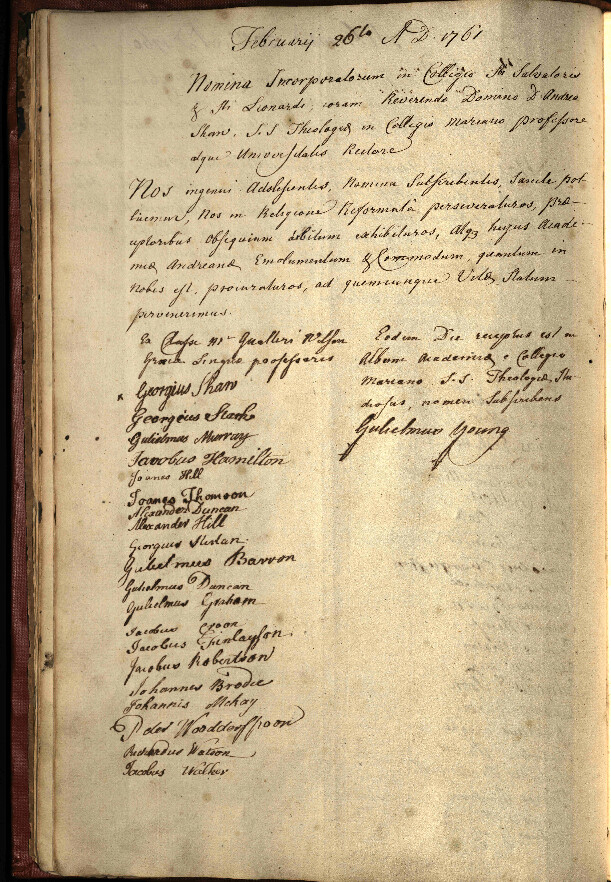 Februarij 26to A D. 1761
Nomina Incorporatorum in Collegio Sti Salvatoris
& Sti Leonardi, coram Reverendo Domino D. Andrea
Shaw, S.S Theologiæ in Collegio Mariano professore
atque Universitatis Rectore
Nos ingenui Adolescentes, Nomina Subscribentes, Sancte pol-
licemur, Nos in Religione Reformatâ perseveraturos, præ-
ceptoribus Obsequium debitum exhibituros, Atq3 hujus Acade-
miæ Andreanæ Emolumentum & Commodum, quantum in
Nobis est, procuraturos, ad quemcunque Vitæ Statum
pervenerimus.
Ex Classe Mri Gualteri Wilson
Græcæ Linguæ professoris
Georgius Shaw
Georgius Stark
Gulielmus Murray
Jacobus Hamilton
Joannes Hill
Joanes Thomson
Alexander Duncan
Alexander Hill
Georgius
Gulielmus Barron
Gulielmus Duncan
Gulielmus Graham
Jacobus
Jacobus Finlayson
Jacobus Robertson
Johannes Brodie
Johannis McKay
Peter
Richardus Watson
Jacobus Walker
Eodem Die receptus est in
Album Academiæ e Collegio
Mariano S.S. Theologiæ Stu-
diosus, nomen Subscribens
Gulielmus Young